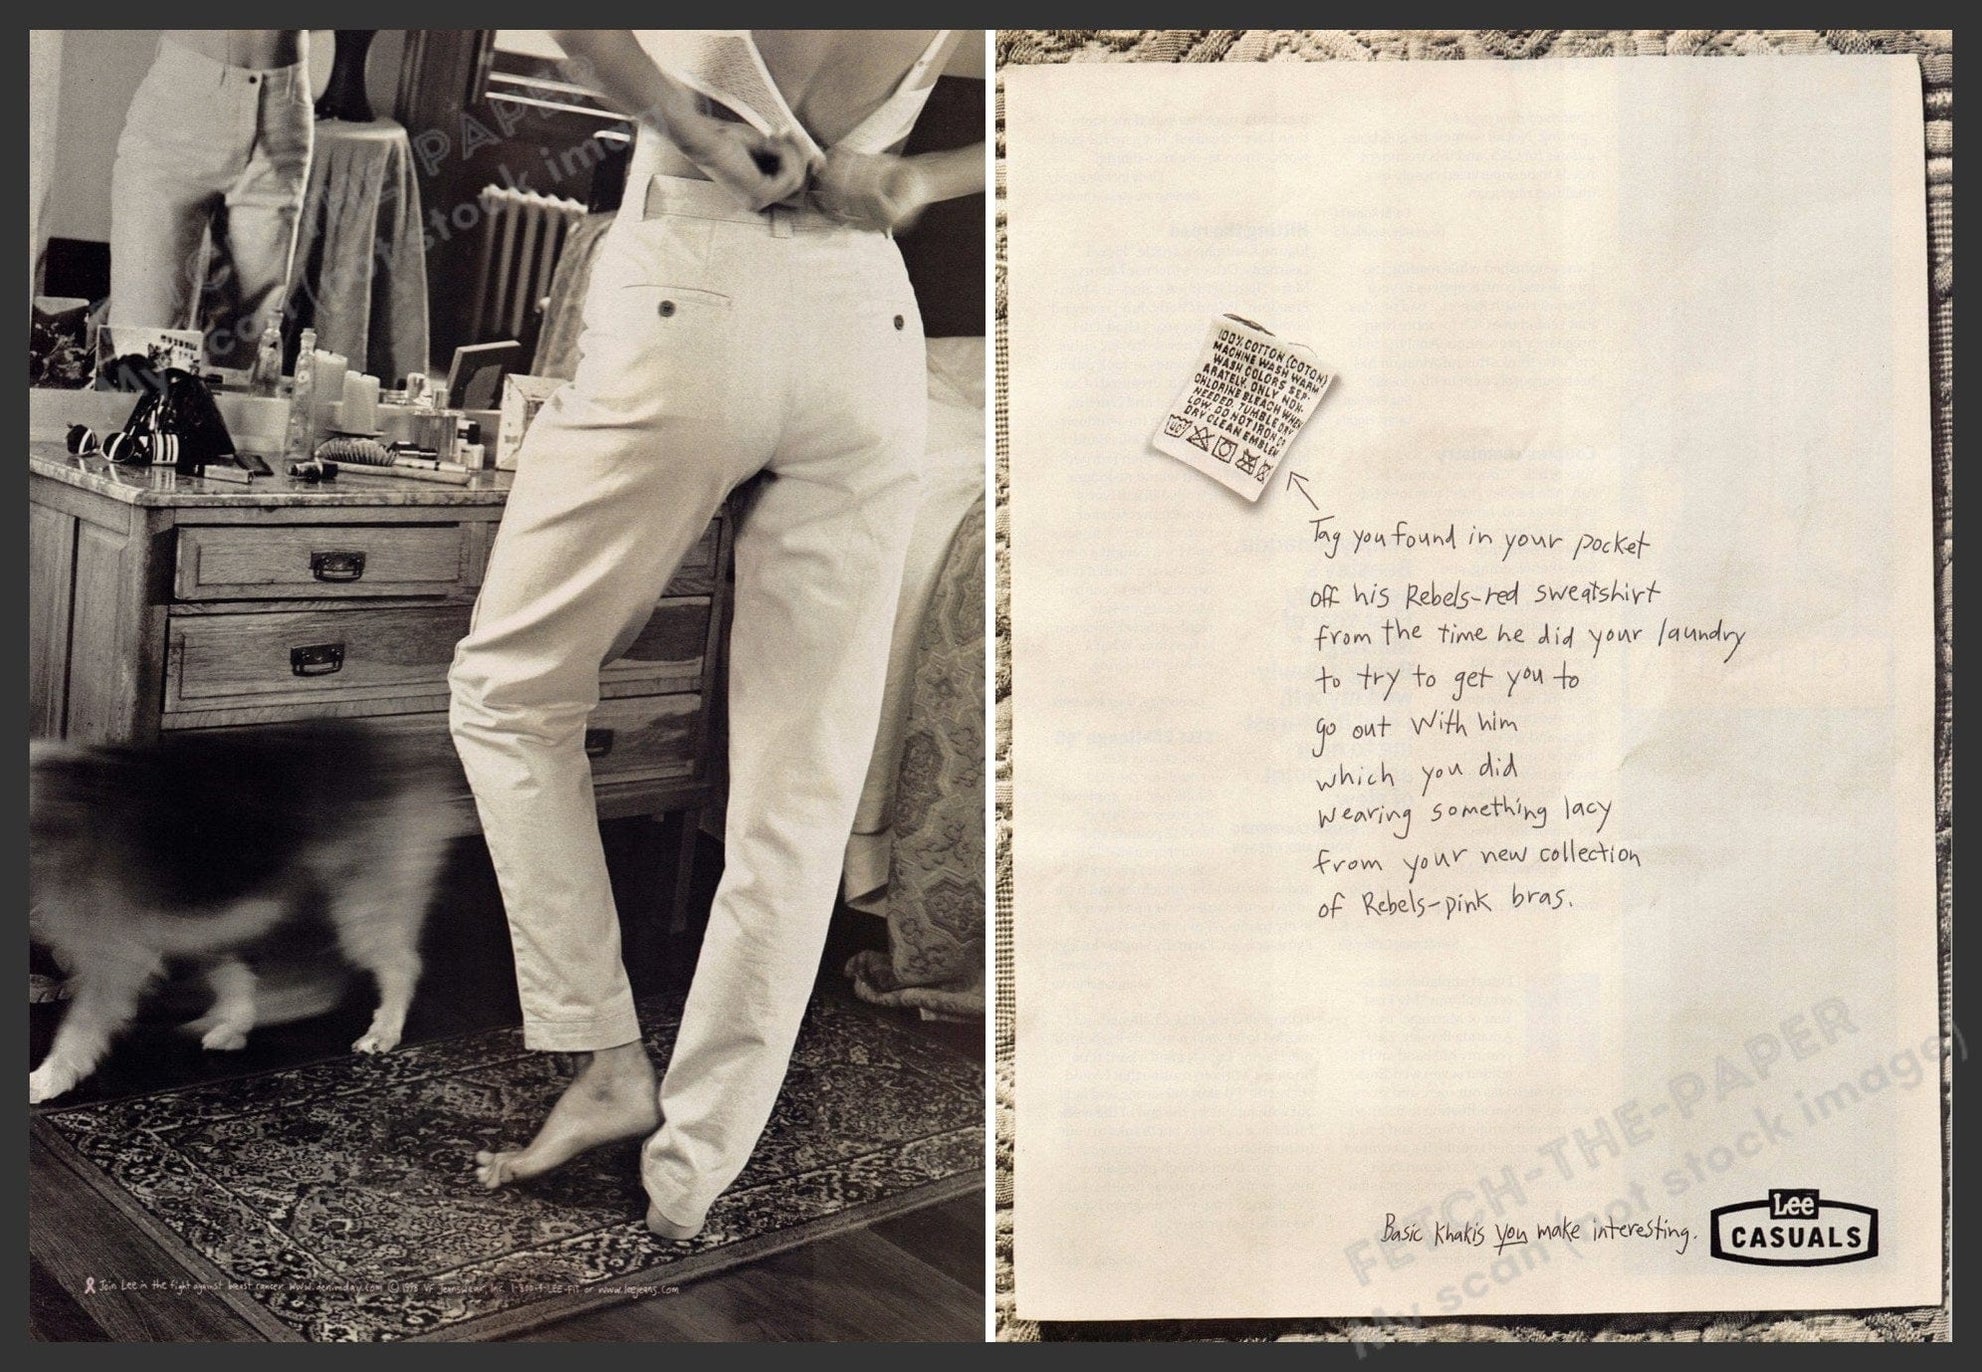 Join Lee in the fight against breast cancer. www.denimday.com © 1998 VF Jeanswear, Inc. 1-800-4-LEE-FIT or www.leejeans.com
100% COTTON (COTON)
MACHINE WASH WARM
WASH COLORS SEP-
ARATELY. ONLY NON-
CHLORINE BLEACH WHEN
NEEDED. TUMBLE DRY
LOW. DO NOT IRON OR
DRY CLEAN EMBLEM
Tag you found in your pocket
off his Rebels-red sweatshirt
from the time he did your laundry
to try to get you to
go out with him
which you did
wearing something lacy
from your new collection
of Rebels-pink bras.
Basic Khakis you make interesting.
Lee
CASUALS
FETCH-THE-PAPER
My scan (not stock image)